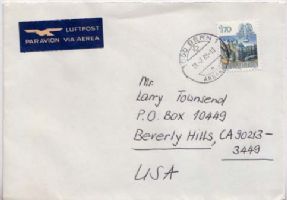 LUFTPOST
PAR AVION VIA AEREA
BERN
170
Mr.
Larry Townsend
P.O. Box 10449
Beverly Hills, CA 90213-
3449
USA